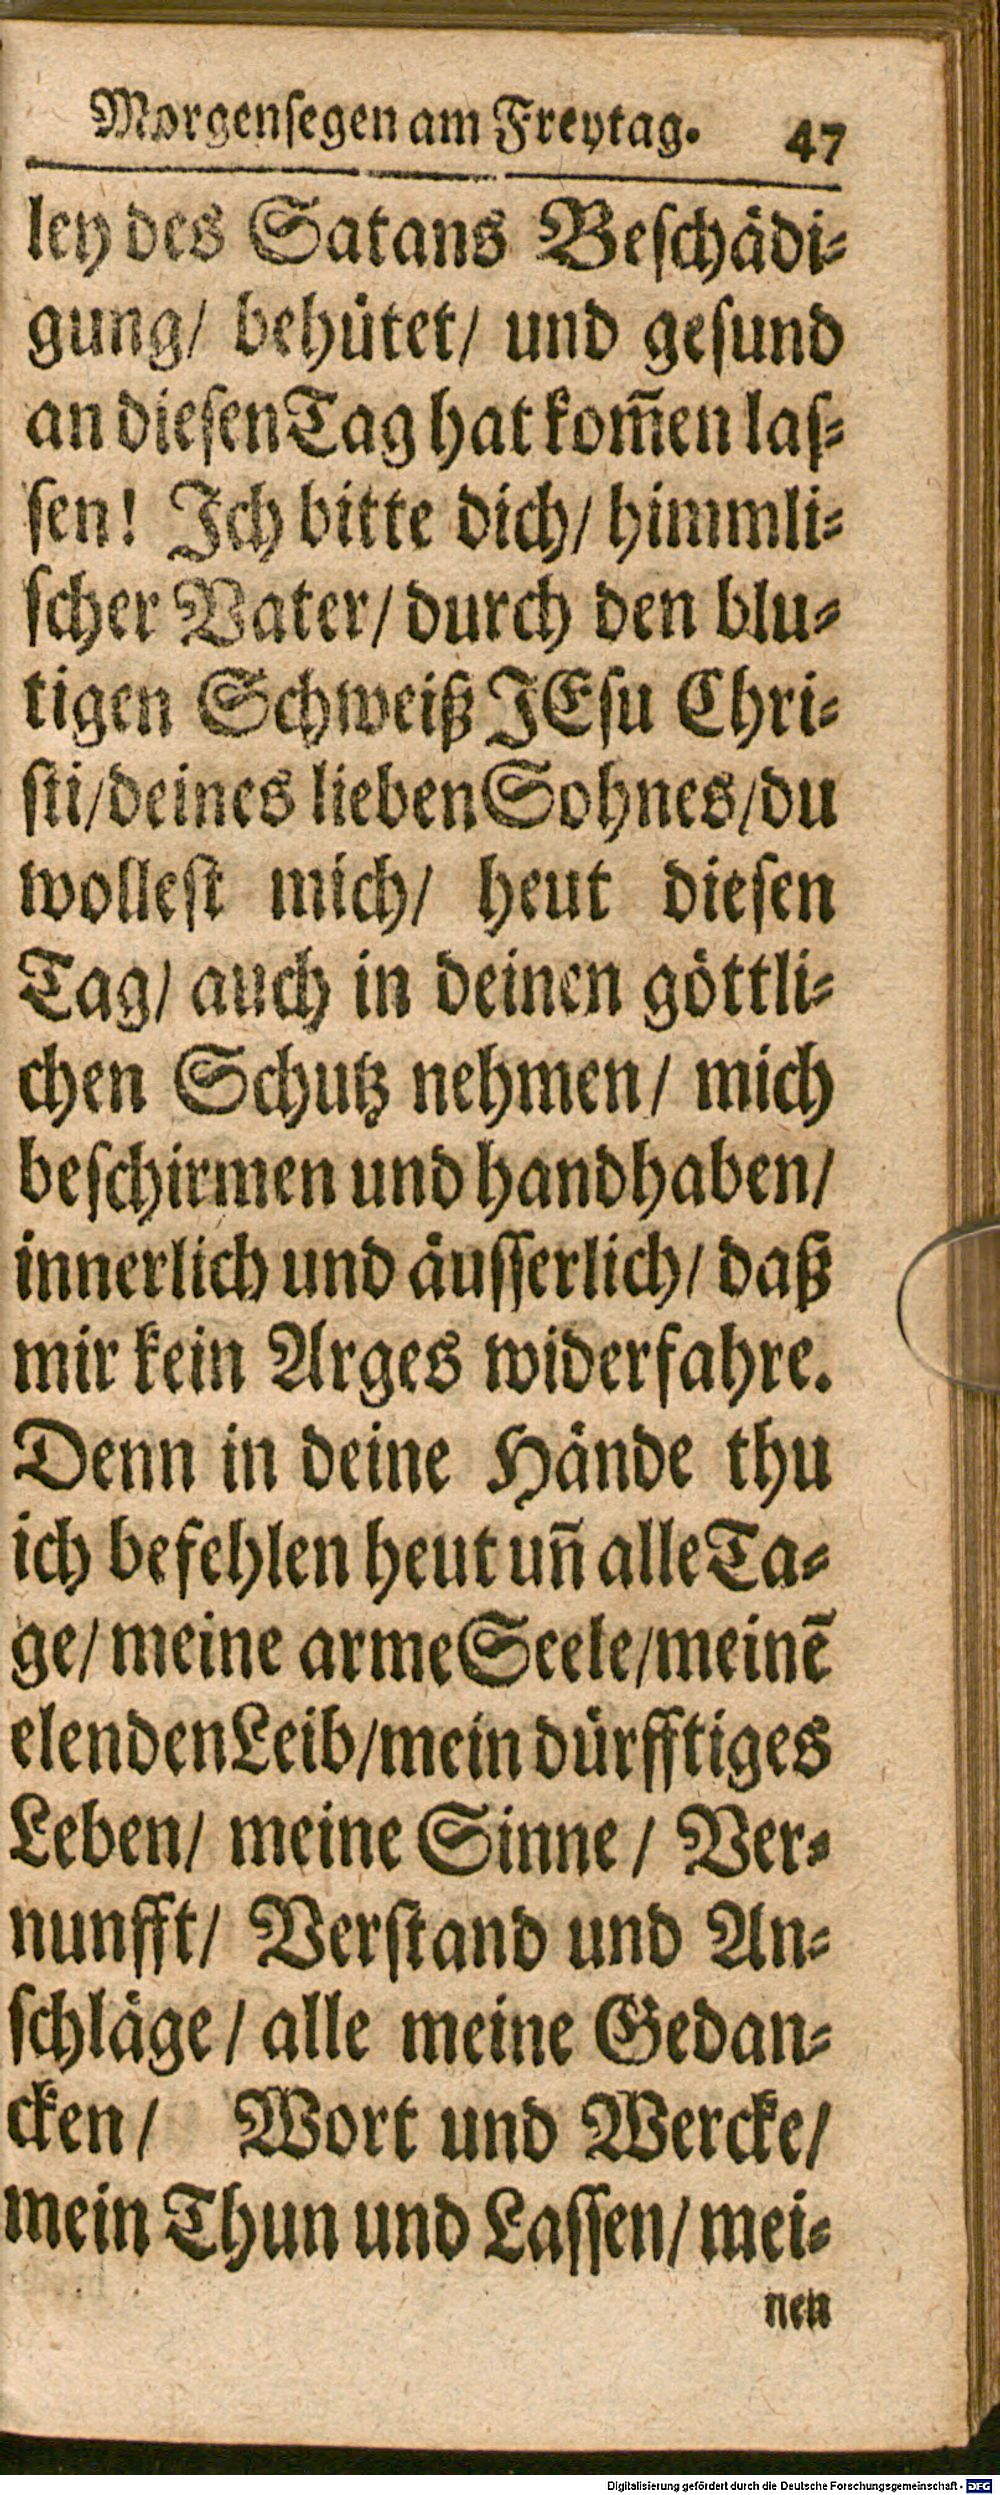 Morgenſegen am Freytag. 47
ley des Satans Beſchaͤdi⸗
gung/ behuͤtet/ und geſund
an dieſen Tag hat kom̃en laſ⸗
ſen! Ich bitte dich/ himmli⸗
ſcher Vater/ durch den blu⸗
tigen Schweiß JEſu Chri⸗
ſti/ deines lieben Sohnes/ du
wolleſt mich/ heut dieſen
Tag/ auch in deinen goͤttli⸗
chen Schutz nehmen/ mich
beſchirmen und handhaben/
innerlich und aͤuſſerlich/ daß
mir kein Arges widerfahre.
Denn in deine Haͤnde thu
ich befehlen heut uñ alle Ta⸗
ge/ meine arme Seele/ meinē
elenden Leib/ mein duͤrfftiges
Leben/ meine Sinne/ Ver⸗
nunfft/ Verſtand und An⸗
ſchlaͤge/ alle meine Gedan⸗
cken/ Wort und Wercke/
mein Thun und Laſſen/ mei⸗
nen
Digitalisierung gefördert durch die Deutsche Forschungsgemeinschaft - DFG